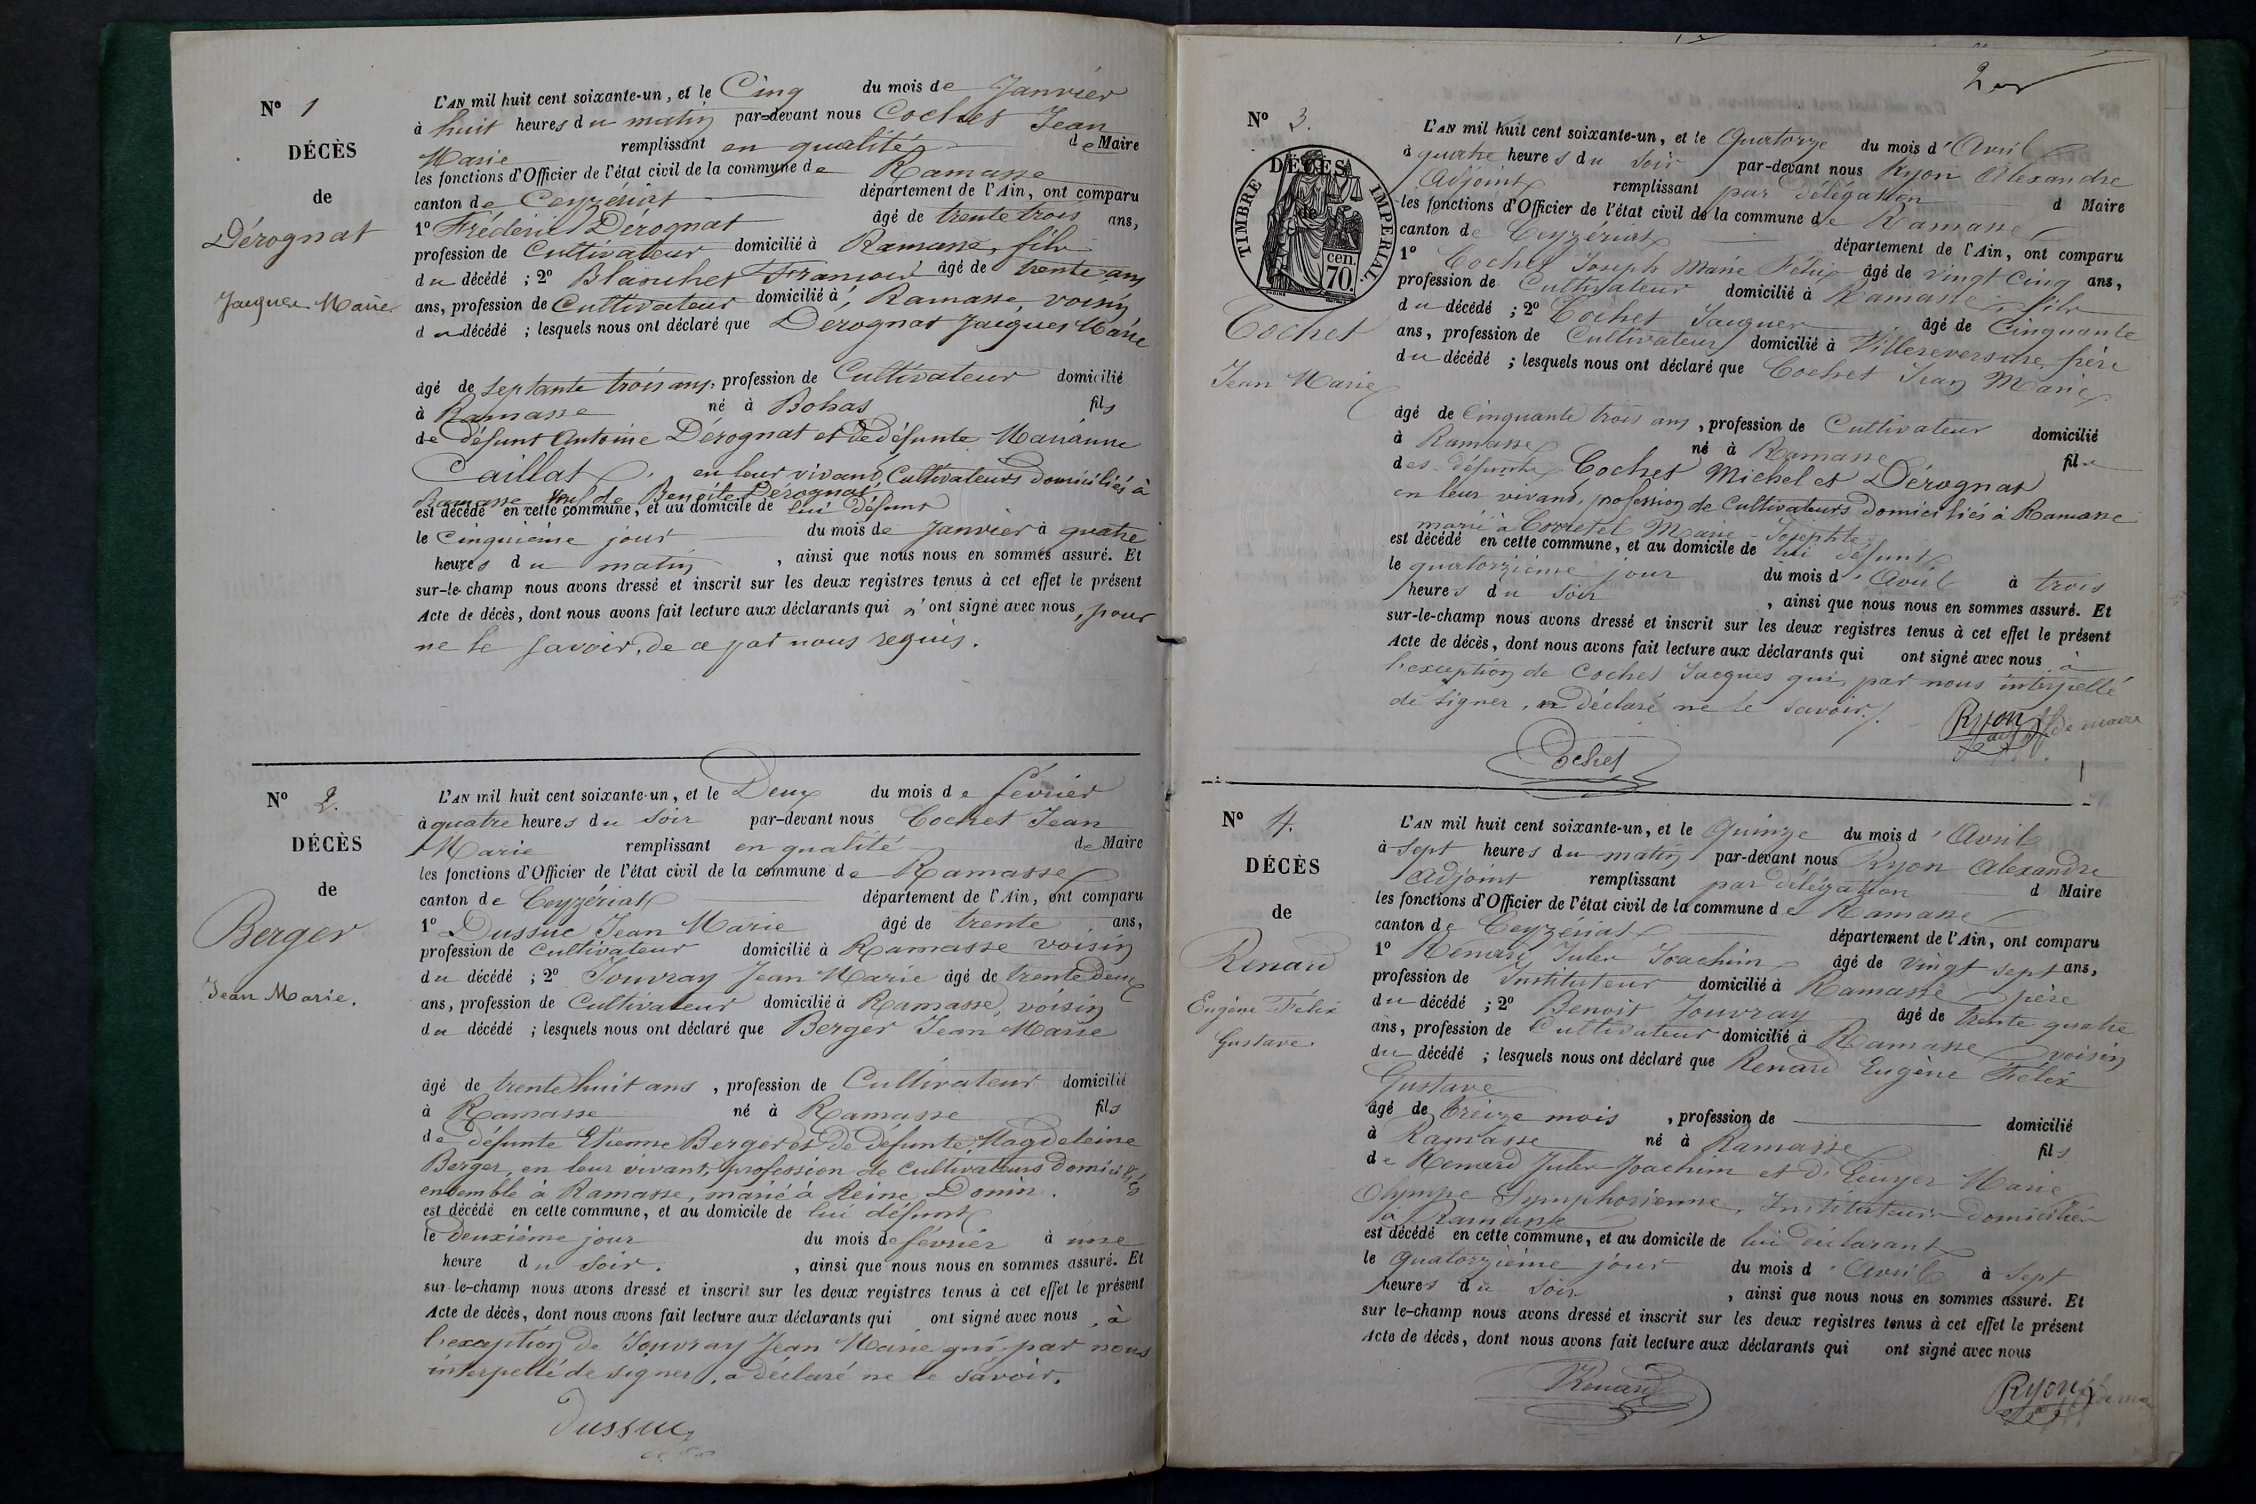 N° 1
DÉCÈS
de
Dérognat
Jacques Marie
L'AN mil huit cent soixante-un, et le Cinq du mois de Janvier
à huit heures du matin par-devant nous Cochet Jean
Marie remplissant en qualité de Maire
les fonctions d'Officier de l'état civil de la commune de Ramasse
canton de Ceyzériat département de l'Ain, ont comparu
1° Frédéric Dérognat âgé de trente trois ans,
profession de Cultivateur domicilié à Ramasse, fils
du décédé ; 2° Blanchet François âgé de trente ans
ans, profession de Cultivateur domicilié à Ramasse voisin
du décédé ; lesquels nous ont déclaré que Dérognat Jacques Marie
âgé de septante trois ans, profession de Cultivateur domicilié
à Ramasse né à Bohas fils
de défunt Antoine Dérognat et de défunte Marianne
Caillat, en leur vivant Cultivateurs domiciliés à
Ramasse veuf de Benoîte Dérognat
est décédé en cette commune, et au domicile de lui défunt
le cinquième jour du mois de Janvier à quatre
heures du matin, ainsi que nous nous en sommes assuré. Et
sur-le-champ nous avons dressé et inscrit sur les deux registres tenus à cet effet le présent
Acte de décès, dont nous avons fait lecture aux déclarants qui n'ont signé avec nous, pour
ne le savoir, de ce par nous requis.
N° 2.
DÉCÈS
de
Berger
Jean Marie.
L'AN mil huit cent soixante-un, et le Deux du mois de février
à quatre heures du soir par-devant nous Cochet Jean
Marie remplissant en qualité de Maire
les fonctions d'Officier de l'état civil de la commune de Ramasse
canton de Ceyzériat département de l'Ain, ont comparu
1° Dussuc Jean Marie âgé de trente ans,
profession de Cultivateur domicilié à Ramasse voisin
du décédé ; 2° Jouvray Jean Marie âgé de trente deux
ans, profession de Cultivateur domicilié à Ramasse, voisin
du décédé ; lesquels nous ont déclaré que Berger Jean Marie
âgé de trente huit ans, profession de Cultivateur domicilié
à Ramasse né à Ramasse fils
de défunte Etienne Berger et de défunte Magdeleine
Berger, en leur vivant, profession de cultivateurs domiciliés
ensemble à Ramasse, marié à Reine Donin.
est décédé en cette commune, et au domicile de lui défunt
le deuxième jour du mois de février à une
heure du soir., ainsi que nous nous en sommes assuré. Et
sur-le-champ nous avons dressé et inscrit sur les deux registres tenus à cet effet le présent
Acte de décès, dont nous avons fait lecture aux déclarants qui ont signé avec nous, à
l'exception de Jouvray Jean Marie qui par nous
interpellé de signer, a déclaré ne le savoir.
Dussuc
N° 3.
DÉCÈS
de
TIMBRE IMPÉRIAL.
cen.
70.
Cochet
Jean Marie
L'AN mil huit cent soixante-un, et le Quatorze du mois d'Avril
à quatre heures du soir par-devant nous Ryon Alexandre
Adjoint remplissant par délégation d Maire
les fonctions d'Officier de l'état civil de la commune de Ramasse
canton de Ceyzériat département de l'Ain, ont comparu
1° Cochet Joseph Marie Félix âgé de vingt cinq ans,
profession de Cultivateur domicilié à Ramasse, fils
du décédé ; 2° Cochet Jacques âgé de Cinquante
ans, profession de Cultivateur domicilié à Villereversure, frère
du décédé ; lesquels nous ont déclaré que Cochet Jean Marie
âgé de Cinquante trois ans, profession de Cultivateur domicilié
à Ramasse né à Ramasse fils
des défunts Cochet Michel et Dérognat
en leur vivant, profession de Cultivateurs domiciliés à Ramasse
marié à Corretel Marie-Josephte
est décédé en cette commune, et au domicile de lui défunt
le quatorzième jour du mois d'Avril à trois
heures du soir, ainsi que nous nous en sommes assuré. Et
sur-le-champ nous avons dressé et inscrit sur les deux registres tenus à cet effet le présent
Acte de décès, dont nous avons fait lecture aux déclarants qui ont signé avec nous à
l'exception de Cochet Jacques qui, par nous interpellé
de signer, a déclaré ne le savoir./.
Ryon
Cochet
N° 4.
DÉCÈS
de
Renard
Eugène Félix
Gustave.
L'AN mil huit cent soixante-un, et le Quinze du mois d'Avril
à sept heures du matin par-devant nous Ryon Alexandre
Adjoint remplissant par délégation d Maire
les fonctions d'Officier de l'état civil de la commune de Ramasse
canton de Ceyzériat département de l'Ain, ont comparu
1° Renard Jules Joachim âgé de vingt sept ans,
profession de Instituteur domicilié à Ramasse, père
du décédé ; 2° Benoit Jouvray âgé de trente quatre
ans, profession de Cultivateur domicilié à Ramasse voisin
du décédé ; lesquels nous ont déclaré que Renard Eugène Félix
Gustave
âgé de treize mois, profession de domicilié
à Ramasse né à Ramasse fils
de Renard Jules Joachim et d'Ecuyer Marie
Olympe Symphorienne, Instituteurs domiciliés
à Ramasse
est décédé en cette commune, et au domicile de lui déclarant
le quatorzième jour du mois d'Avril à sept
heures du soir, ainsi que nous nous en sommes assuré. Et
sur le-champ nous avons dressé et inscrit sur les deux registres tenus à cet effet le présent
Acte de décès, dont nous avons fait lecture aux déclarants qui ont signé avec nous
Renard
Ryon